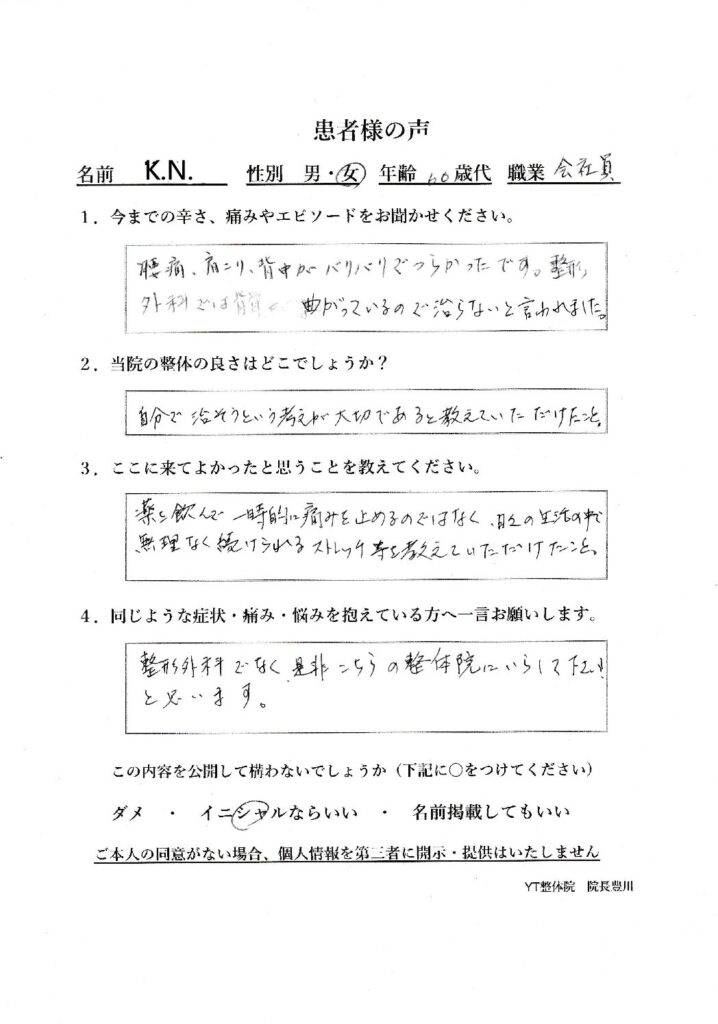 患者様の声
名前 K.N. 性別 男・女 年齢 60歳代 職業 会社員
１．今までの辛さ、痛みやエピソードをお聞かせください。
腰痛、肩こり、背中がバリバリでつらかったです。整形
外科では背骨が曲がっているので治らないと言われました。
２．当院の整体の良さはどこでしょうか？
自分で治そうという考えが大切であると教えていただけたこと。
３．ここに来てよかったと思うことを教えてください。
薬を飲んで一時的に痛みを止めるのではなく、日々の生活の中で
無理なく続けられるストレッチ等を教えていただけたこと。
４．同じような症状・痛み・悩みを抱えている方へ一言お願いします。
整形外科でなく、是非こちらの整体院にいらして下さい
と思います。
この内容を公開して構わないでしょうか（下記に〇をつけてください）
ダメ ・ イニシャルならいい ・ 名前掲載してもいい
ご本人の同意がない場合、個人情報を第三者に開示・提供はいたしません
YT整体院 院長豊川